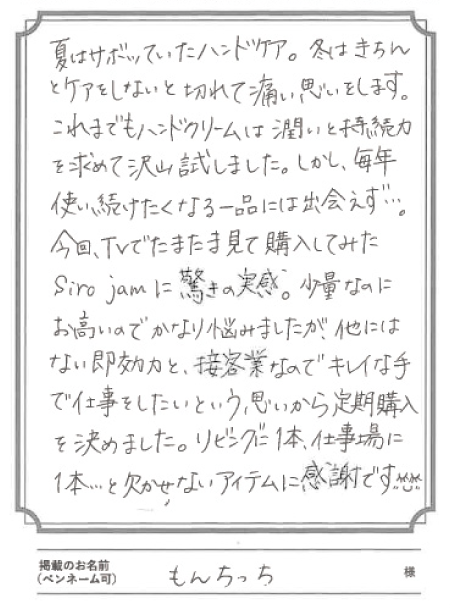 夏はサボッていたハンドケア。冬はきちん
とケアをしないと切れて痛い思いをします。
これまでもハンドクリームは潤いと持続力
を求めて沢山試しました。しかし、毎年
使い続けたくなる一品には出会えず…。
今回、TVでたまたま見て購入してみた
Siro jamに驚きの実感。少量なのに
お高いのでかなり悩みましたが、他には
ない即効力と、接客業なのでキレイな手
で仕事をしたいという思いから定期購入
を決めました。リビングに1本、仕事場に
1本…と欠かせないアイテムに感謝です
掲載のお名前
(ペンネーム可) もんちっち 様